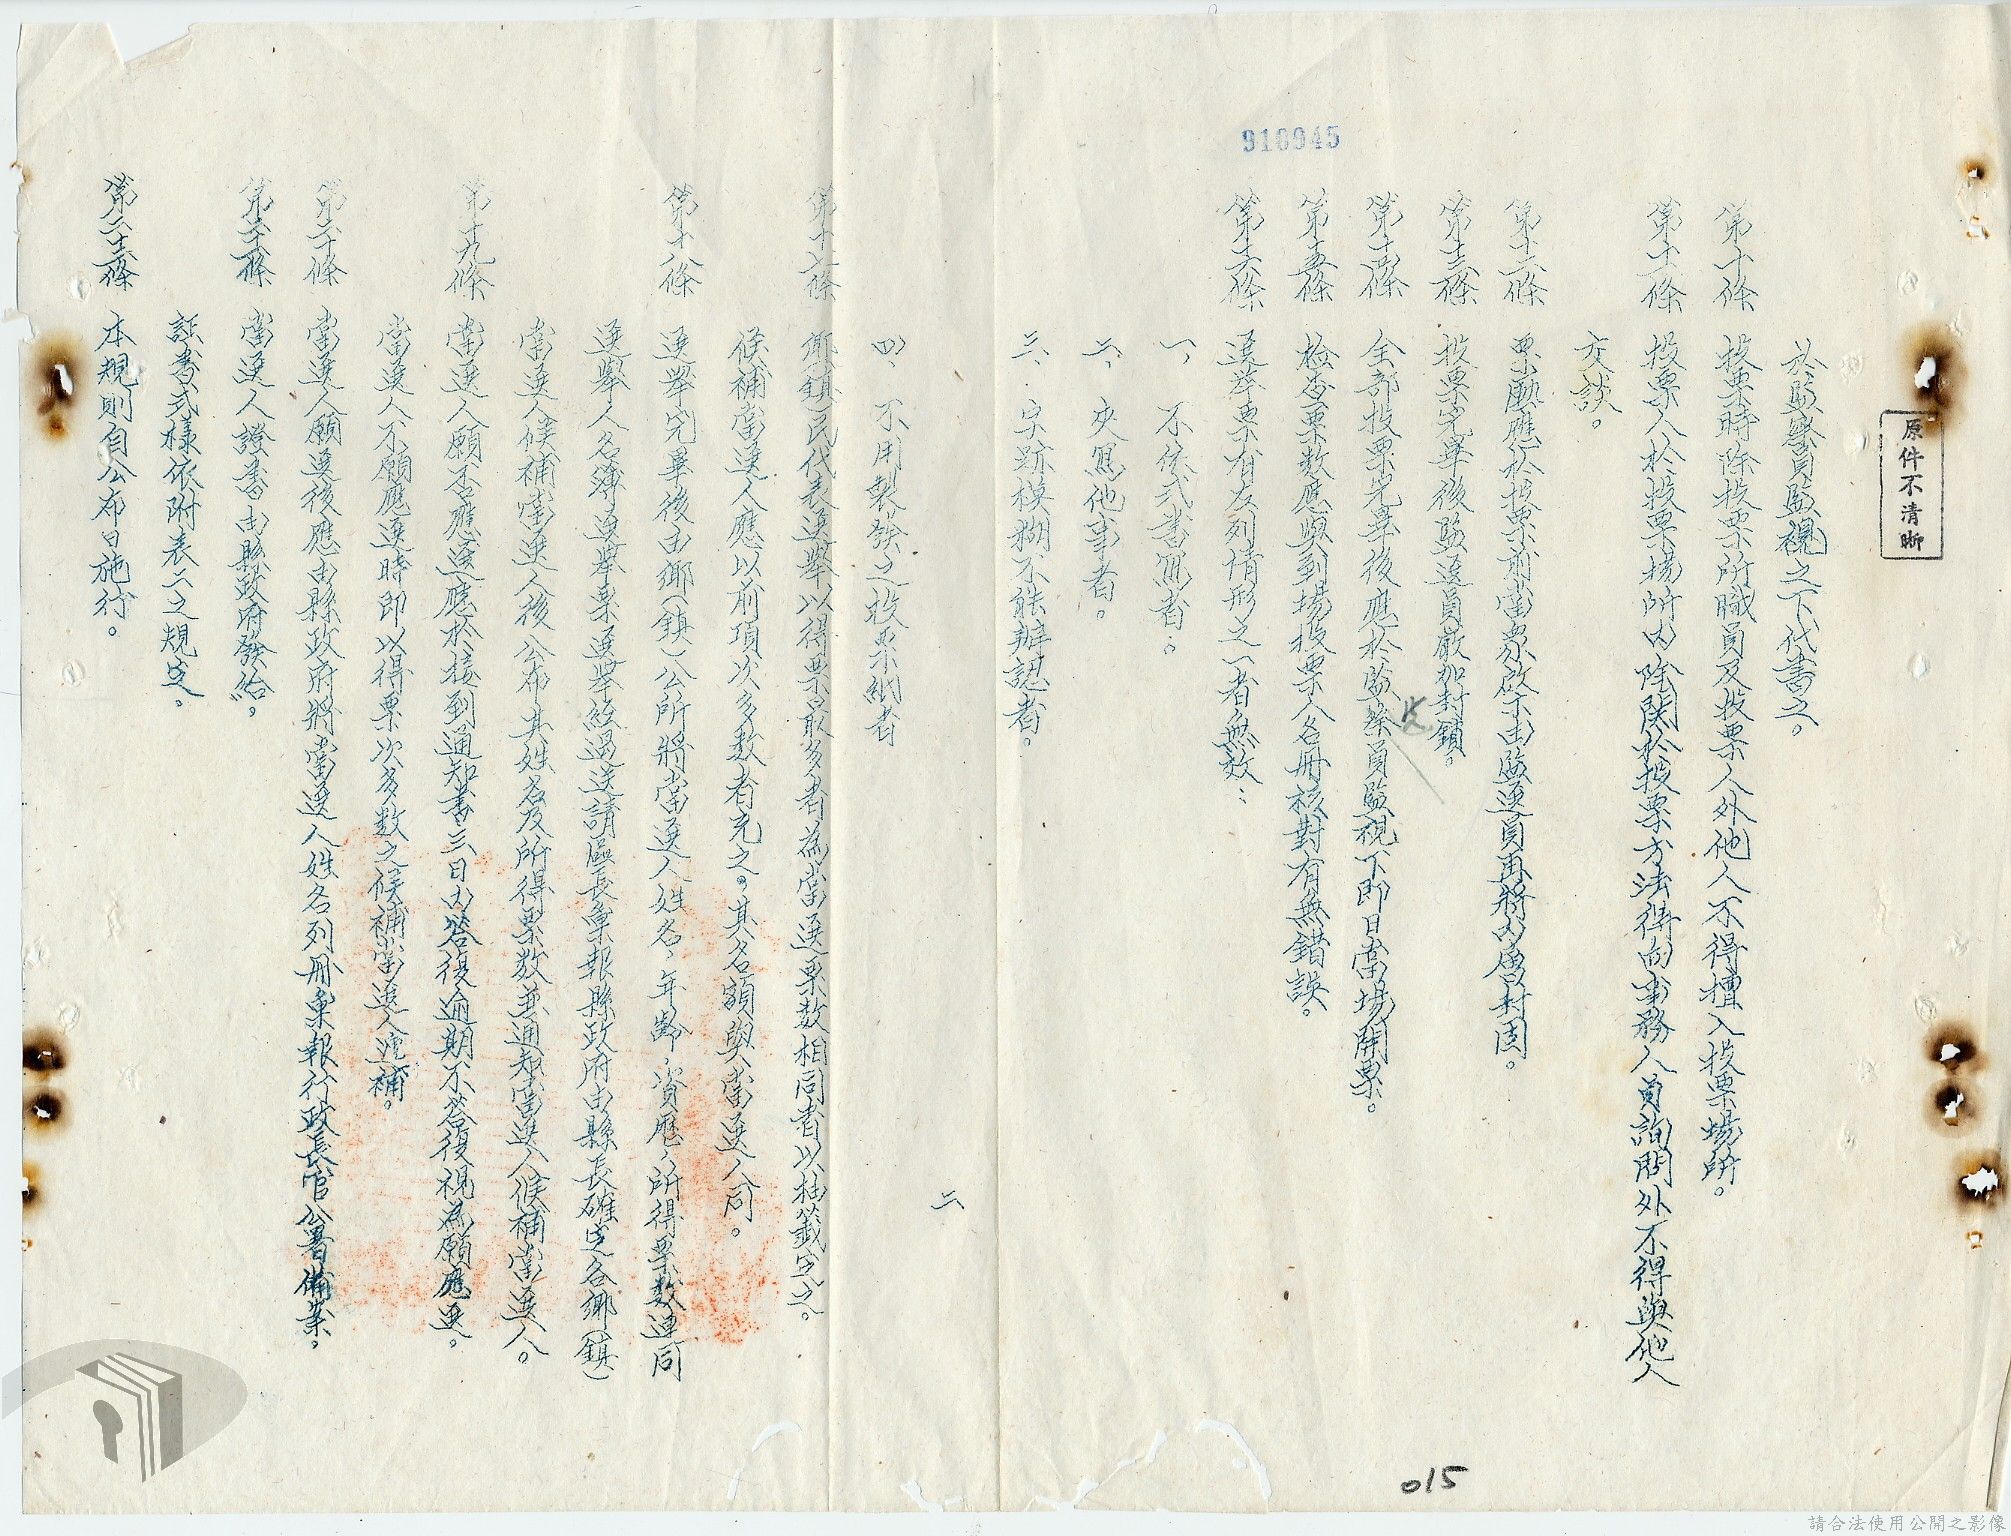 原件不清晰
910945
於監察員監視之下代書之。
第十條 投票時除投票所職員及投票人外他人不得擅入投票場所。
第十一條 投票人於投票場所內除関於投票方法得向事務人員詢問外不得與他人
交談。
第十二條 票匭應於投票前當眾啟示由監選員再將內層封固。
第十三條 投票完畢後監選員嚴加封鎖。
第十四條 全部投票完畢後應於監察員監視下即日當場開票。
第十五條 检查票数應與到場投票人名册核對有無錯誤。
第十六條 選举票有左列情形之一者無效：
一、不依式書寫者：
二、夾寫他事者。
三、字跡模糊不能辦認者。
二
四、不用製發之投票紙者
第十七條 鄉（鎮）民代表選舉以得票最多者為當選票数相同者以抽籤定之。
候補當選人應以前項次多数者充之。其名額與當選人同。
第十八條 选举完畢後由鄉（鎮）公所將當選人姓名，年齡，資歷，所得票数連同
選舉人名簿選舉票選舉経過送請區長彙報縣政府由縣長確定各鄉（鎮）
當选人候補當选人後公布其姓名及所得票数並通知當选人候補當選人。
第十九條 當選人願否應選應於接到通知書三日內答復逾期不答復視為願應選。
當選人不願應選時即以得票次多数之候補當選人遞補。
第二十條 當選人願選後應由縣政府將當选人姓名列册彙報行政長官公署備案。
第二十一條 當選人證書由縣政府發給。
証書式樣依附表二之規定。
第二十二條 本規則自公布日施行。
015
請合法使用公開之影像